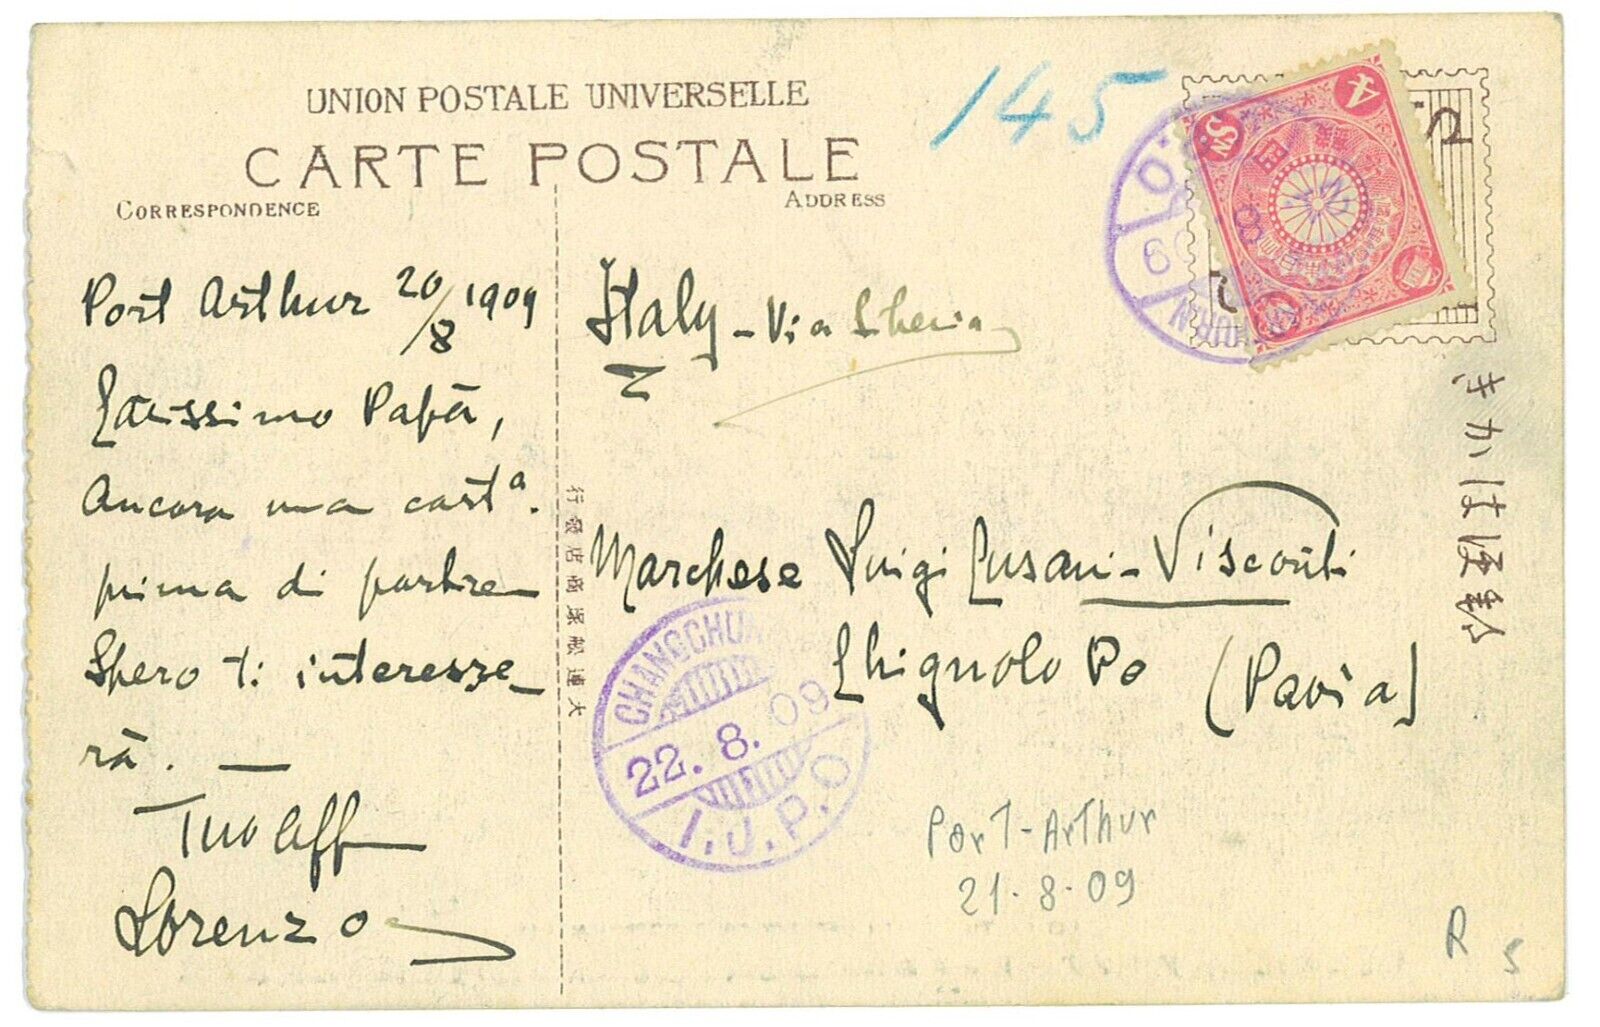 UNION POSTALE UNIVERSELLE
CARTE POSTALE
CORRESPONDENCE
ADDRESS
145
4
SN
Port Arthur 20/8 1909
Carissimo Papà,
Ancora una carta.
prima di partire
Spero ti interesse-
rà. —
Tuo aff
Lorenzo
Italy - Via Siberia
Marchese Luigi Cusani-Visconti
Chignolo Po (Pavia)
CHANGCHUN
22. 8. 09
I.J.P.O
大連松塚商店發行
きかは便郵
Port-Arthur
21-8-09
R
S